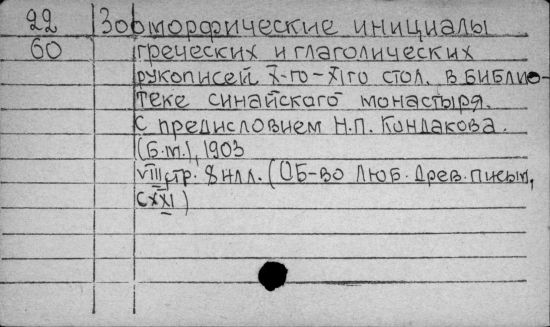 22 Зооморфические инициалы
60 греческих и глаголических
рукописей X-го-XIго стол. в библио
теке синайского монастыря.
С предисловием Н.П. Кондакова.
(Б.м.), 1903
VIII стр. 8 н л л. (Об-во Люб. Древ. письм,
CXXI)